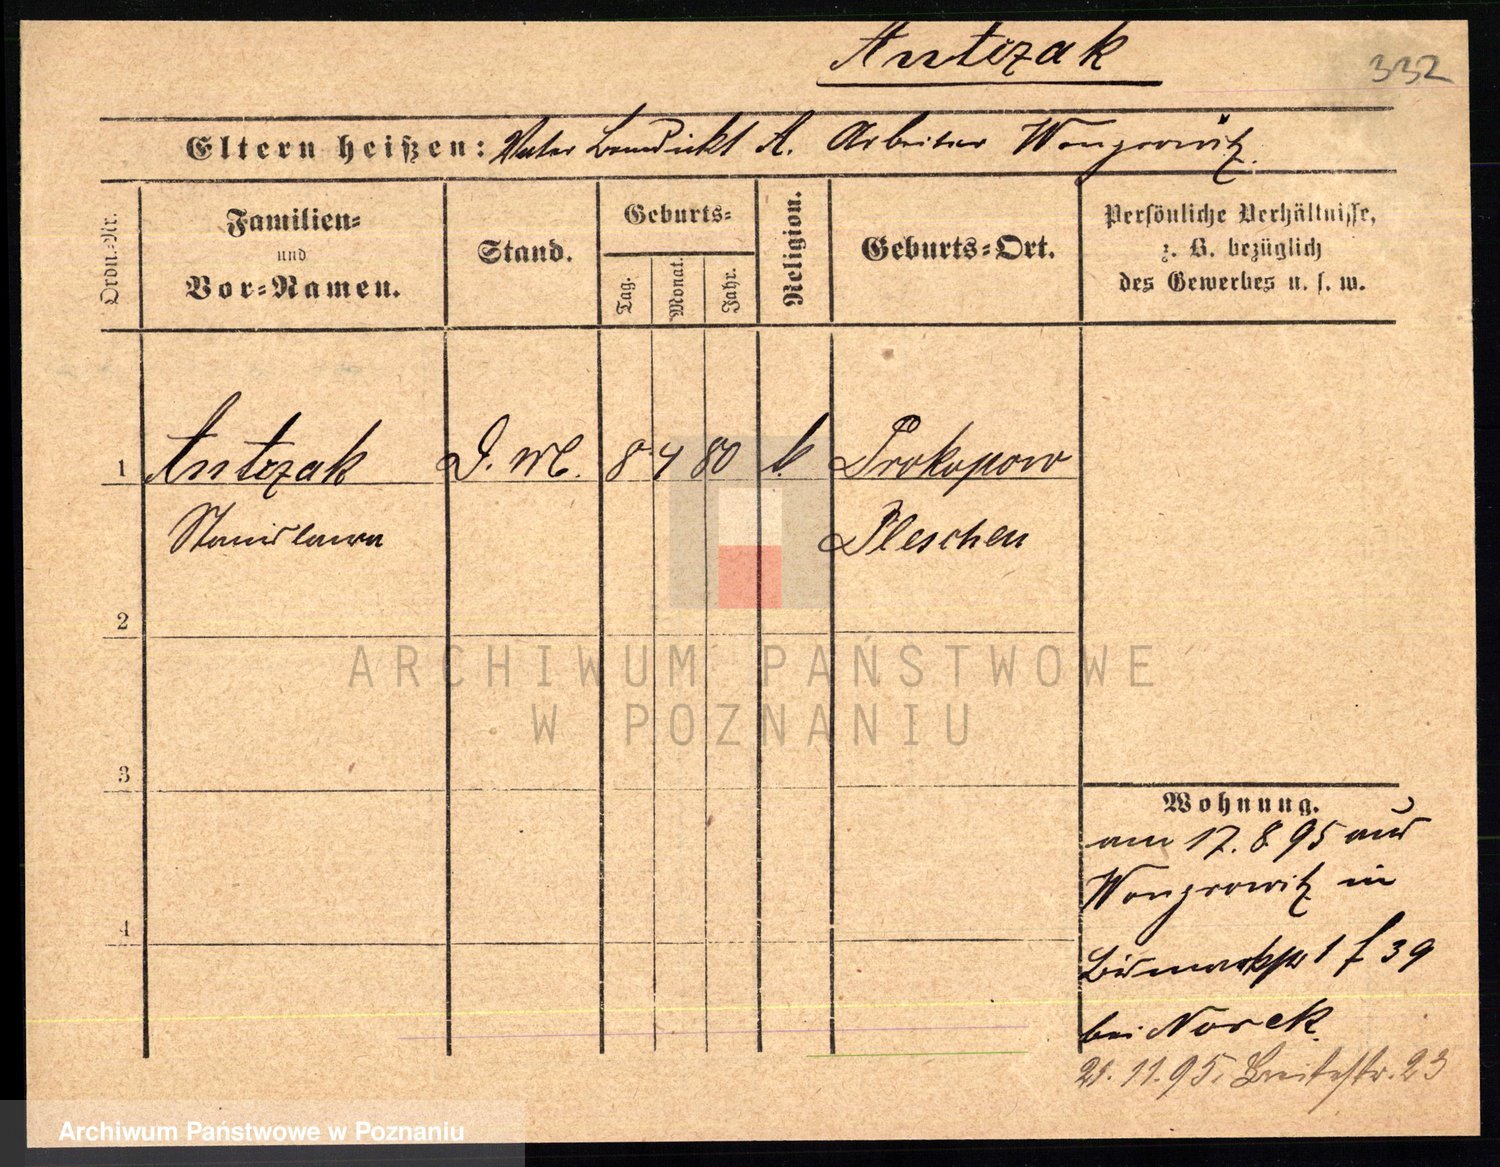 Antczak
332
Eltern heißen: Vater Benedickt A. Arbeiter Wongrowitz.
Ordn.-Nr.
Familien-
und
Vor-Namen.
Stand.
Geburts-
Tag.
Monat.
Jahr.
Religion.
Geburts-Ort.
Persönliche Verhältnisse,
z. B. bezüglich
des Gewerbes u. s. w.
1 Antczak D. M. 8 4 80 k. Prokopow
Stanislawa Pleschen
2
3
4
ARCHIWUM PAŃSTWOWE
W POZNANIU
Wohnung.
am 17. 8. 95 aus
Wongrowitz in
Bismarckstr 1 39
bei Norek.
21. 11. 95. Breitestr. 23
Archiwum Państwowe w Poznaniu